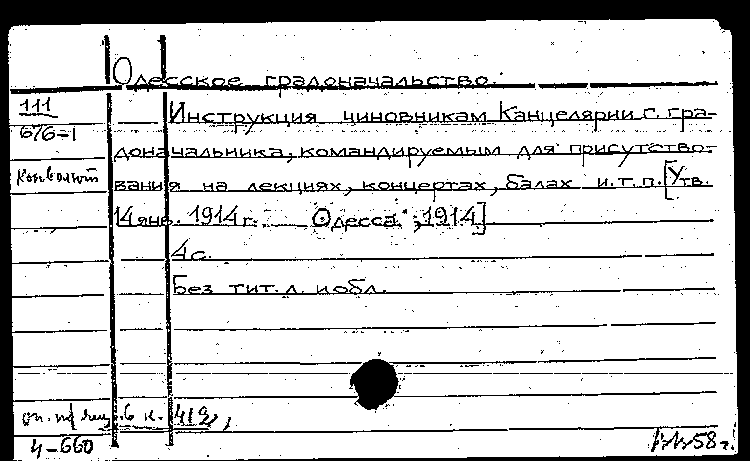 Одесское градоначальство.
111
676-1
Конволют
Инструкция чиновникам Канцелярии г. гра-
доначальника, командируемым для присутство-
вания на лекциях, концертах, балах и.т.п. [Утв.
14 янв. 1914 г. Одесса, 1914]
4 с.
Без тит. л. и обл.
оп. пр в к. 419,
4-660
58 г.